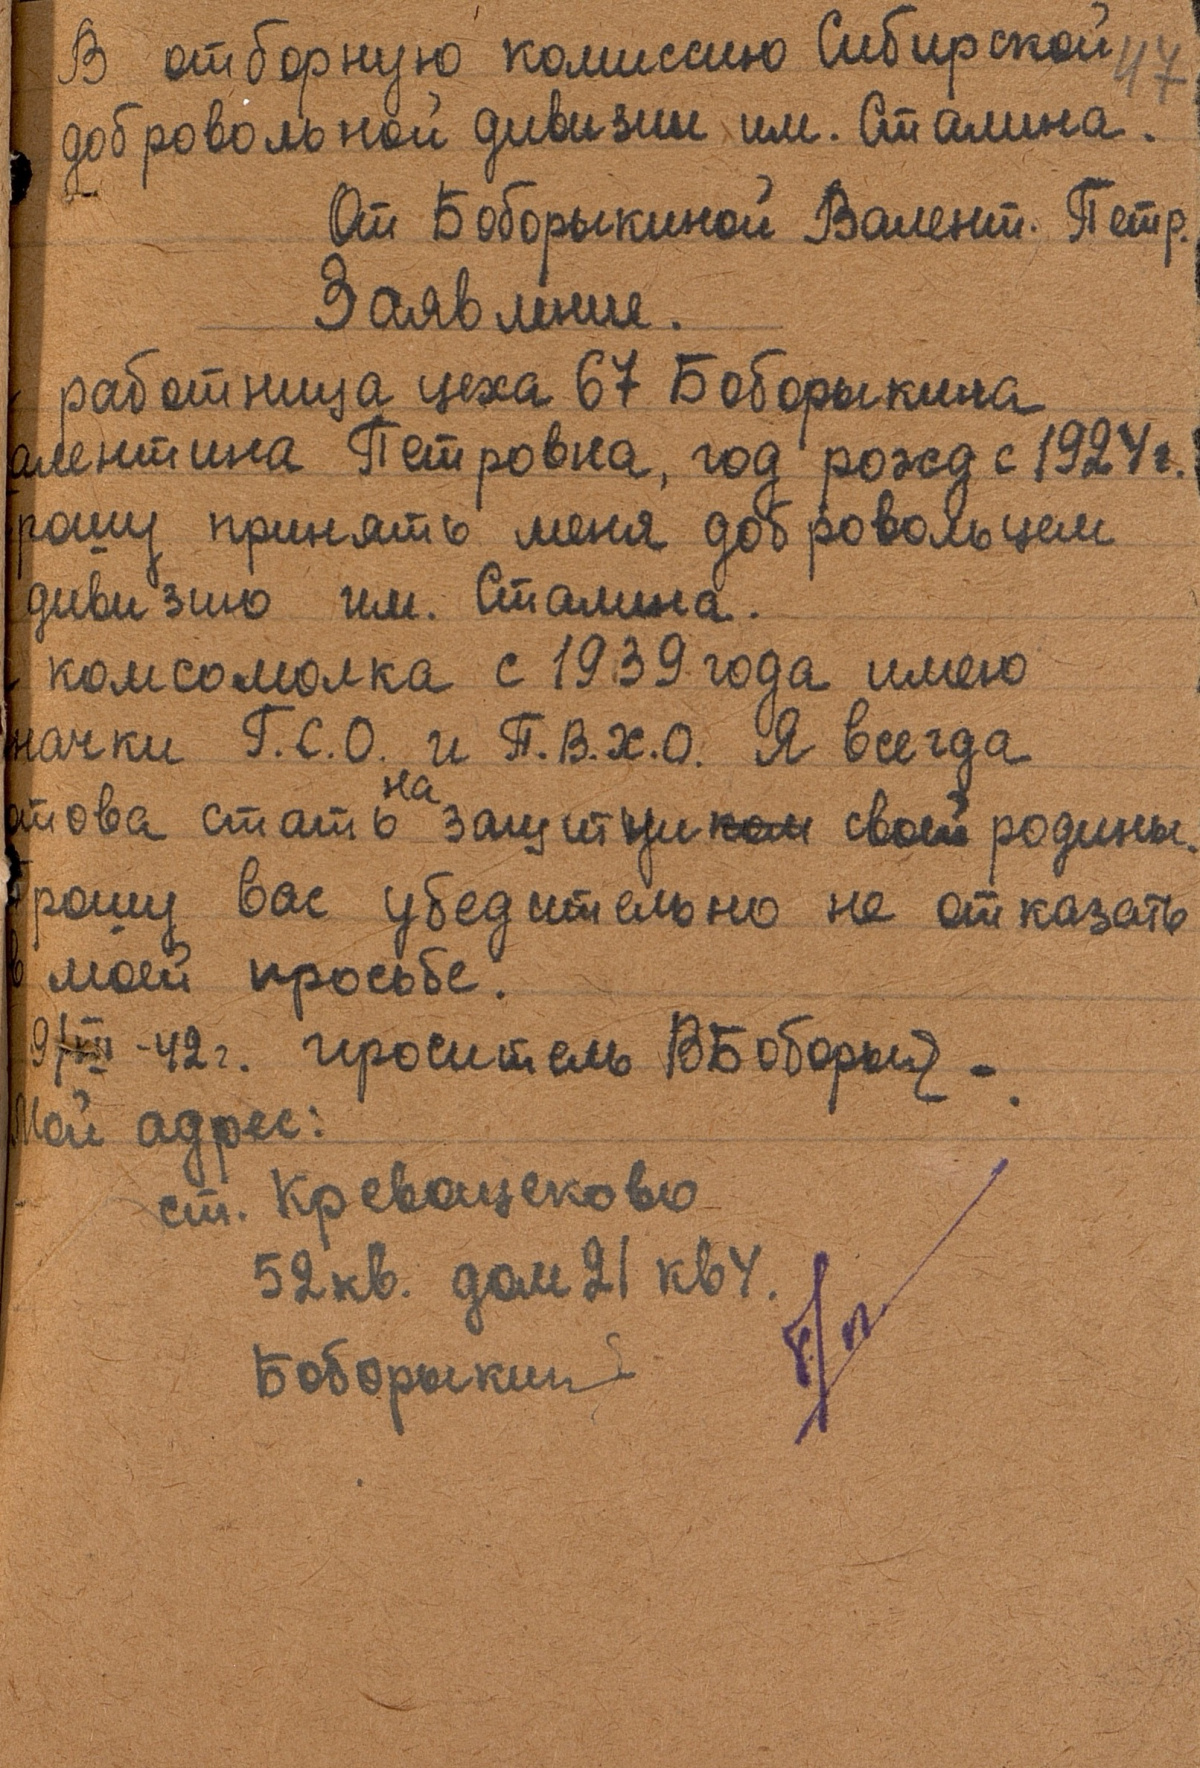 47
В отборную комиссию Сибирской
добровольной дивизии им. Сталина.
От Боборыкиной Валент. Петр.
Заявление.
работница цеха 67 Боборыкина
алентина Петровна, год рожд с 1924г.
рошу принять меня добровольцем
дивизию им. Сталина.
комсомолка с 1939 года имею
начки Г.С.О. и П.В.Х.О. Я всегда
отова стать на защитником своей родины.
Прошу вас убедительно не отказать
в моей просьбе.
-42г. проситель ВБоборык
Мой адрес:
ст. Кревощеково
52 кв. дом 21 кв 4.
Боборыкин